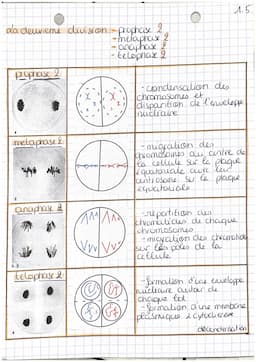 1.5
La deuxième division - prophase 2
- métaphase 2
- anaphase 2
- télophase 2
prophase 2
- condensation des
chromosomes et
disparition de l'enveloppe
nucléaire
métaphase 2
- migration des
chromosomes au centre de
la cellule sur la plaque
équatoriale avec leur
centromère sur la plaque
équatoriale
anaphase 2
- répartition des
chromatides de chaque
chromosomes
- migration des chromatides
sur les pôles de la
cellule
télophase 2
- formation d'une enveloppe
nucléaire autour de
chaque lot
- formation d'une membrane
plasmique 2 cytodiérèse
décondensation